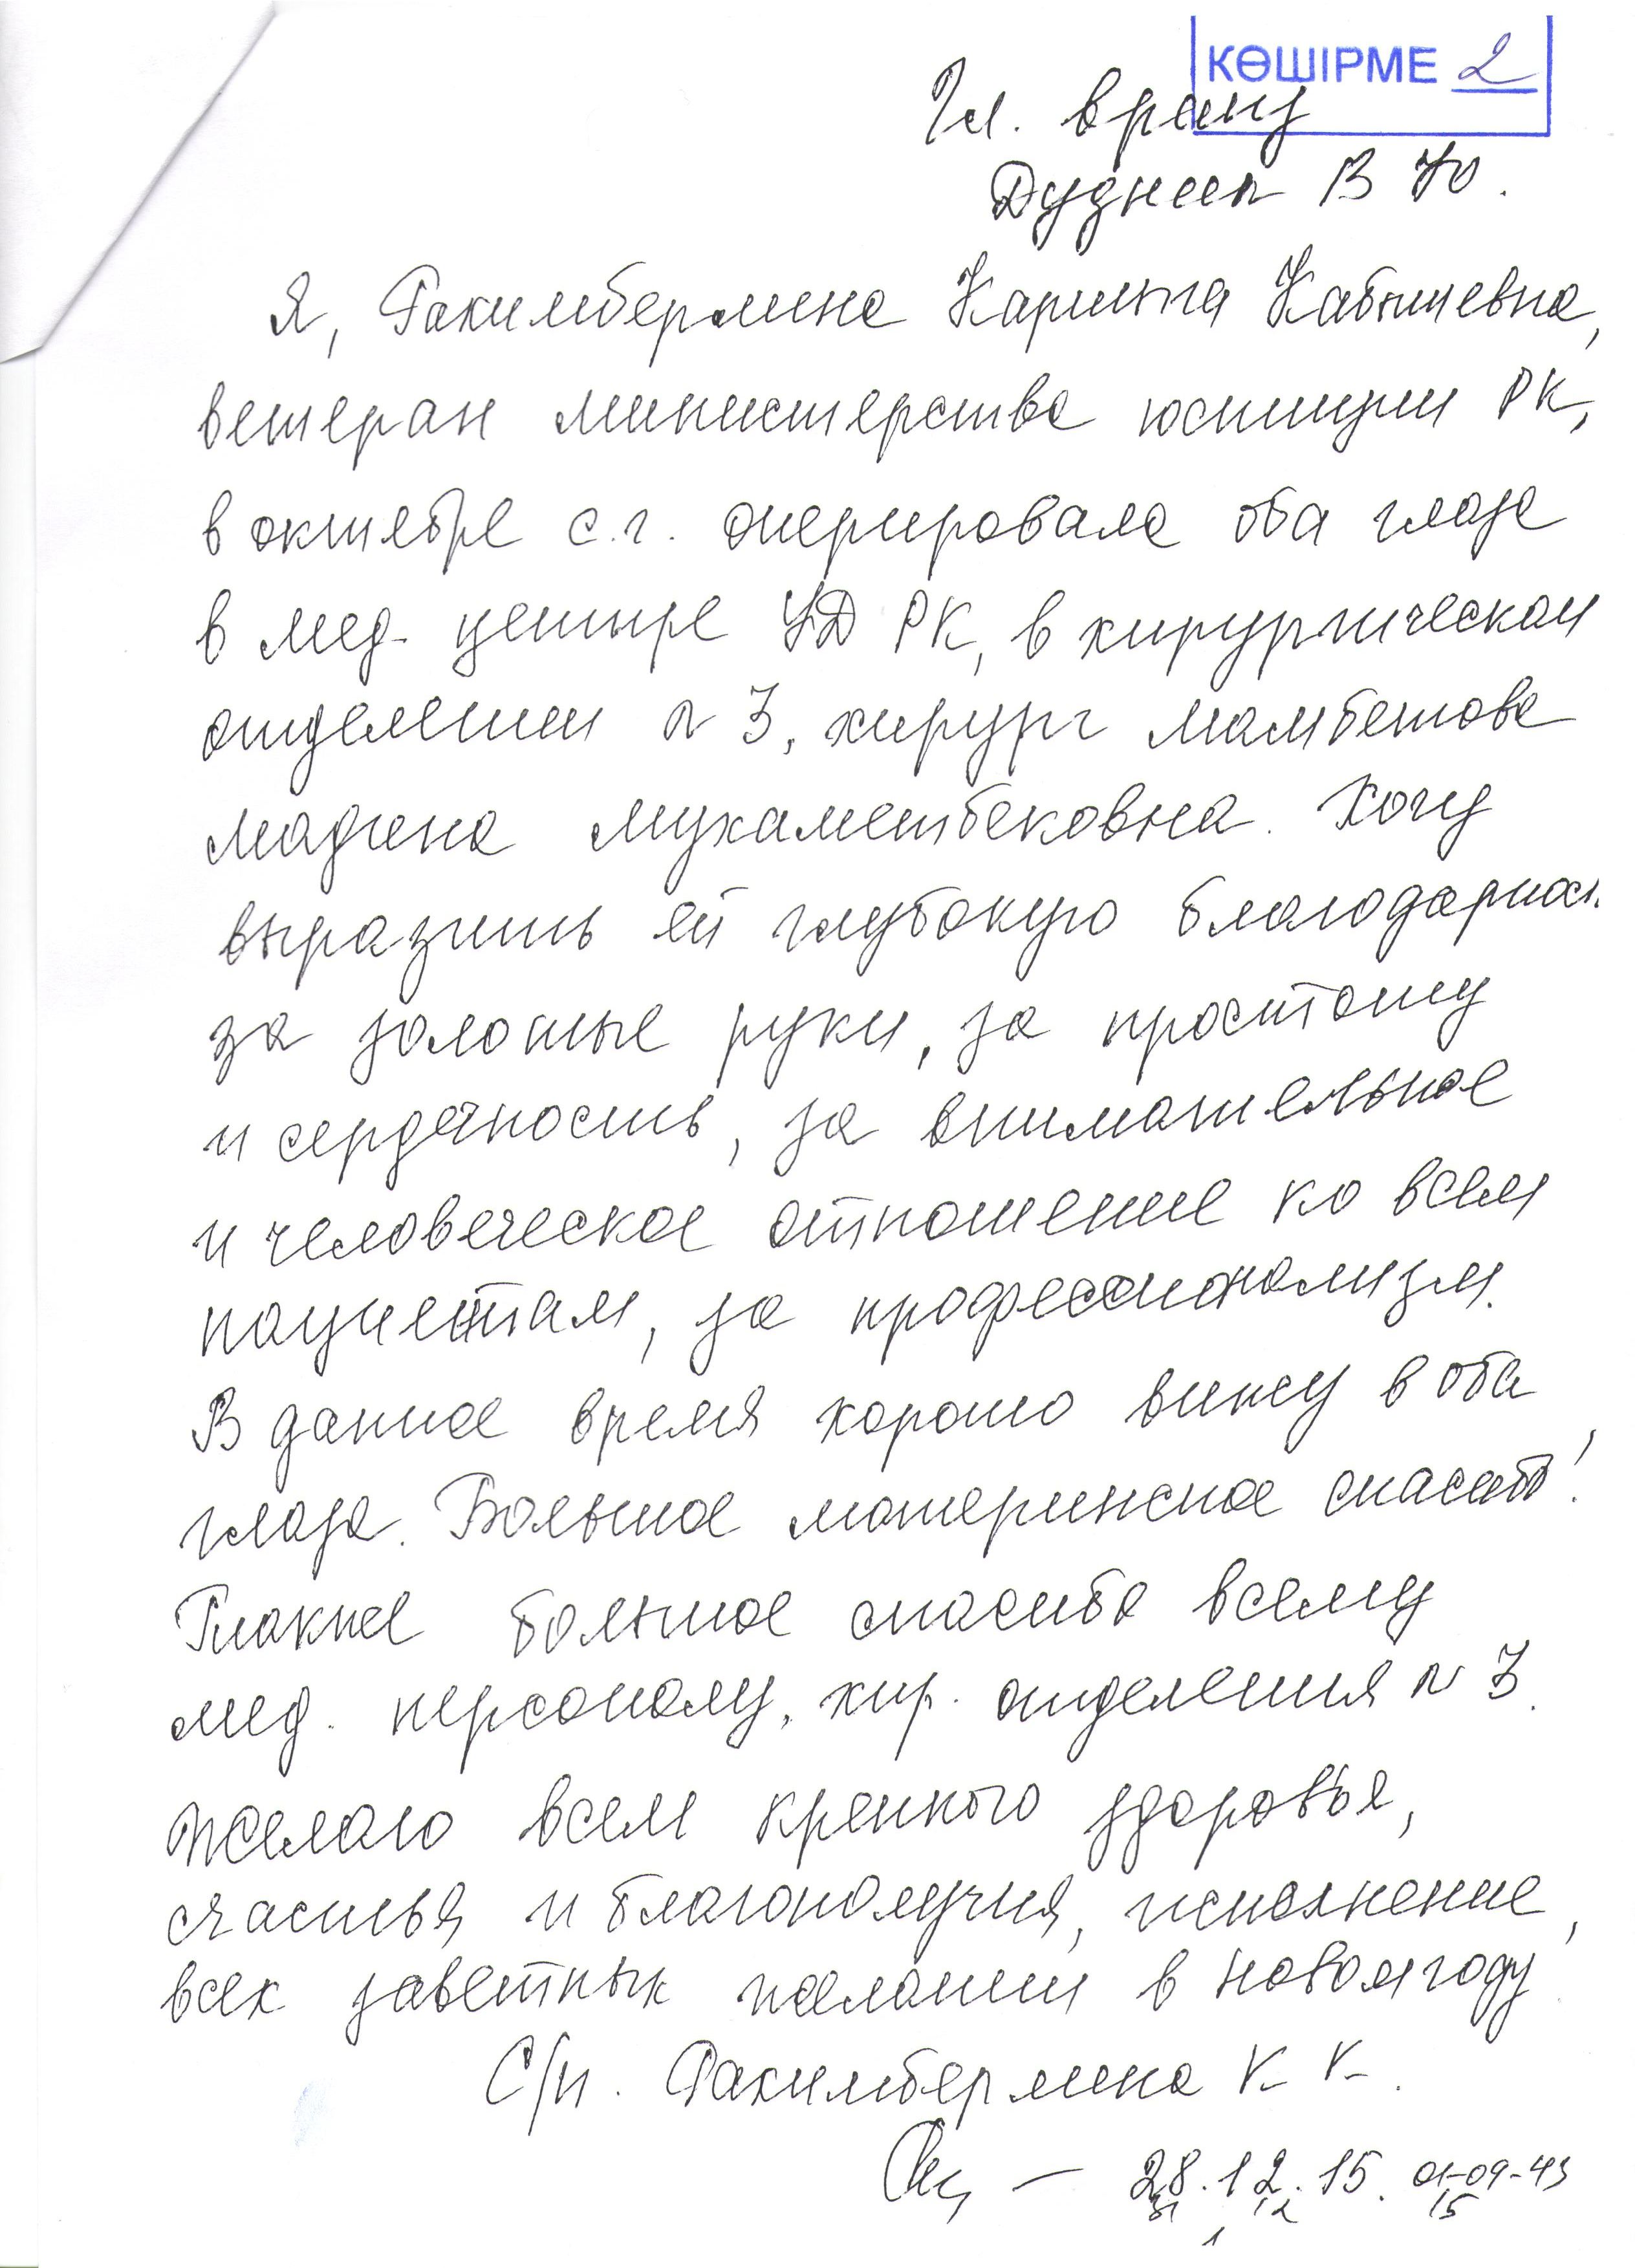 КӨШІРМЕ 2
Гл. врачу
В Ю.
Я, Рахимбермина Карина Кабышевна,
ветеран министерства юстиции РК,
в октябре с.г. оперировала оба глаза
в мед. центре УД РК, в хирургическом
отделении № 3, хирург Мамбетова
Мадина Мухаметбековна. Хочу
выразить ей глубокую благодарнос.
за золотые руки, за простоту
и сердечность, за внимательное
и человеческое отношение ко всем
пациентам, за профессионализм.
В данное время хорошо вижу в оба
глаза. Большое материнское спасибо!
Также большое спасибо всему
мед. персоналу, хир. отделения № 3.
Желаю всем крепкого здоровья,
счастья и благополучия, исполнение,
всех заветных желании в новом году.
С/п. Рахимбермина К. К.
28.12.15. 01-09-43
31 12 15
1